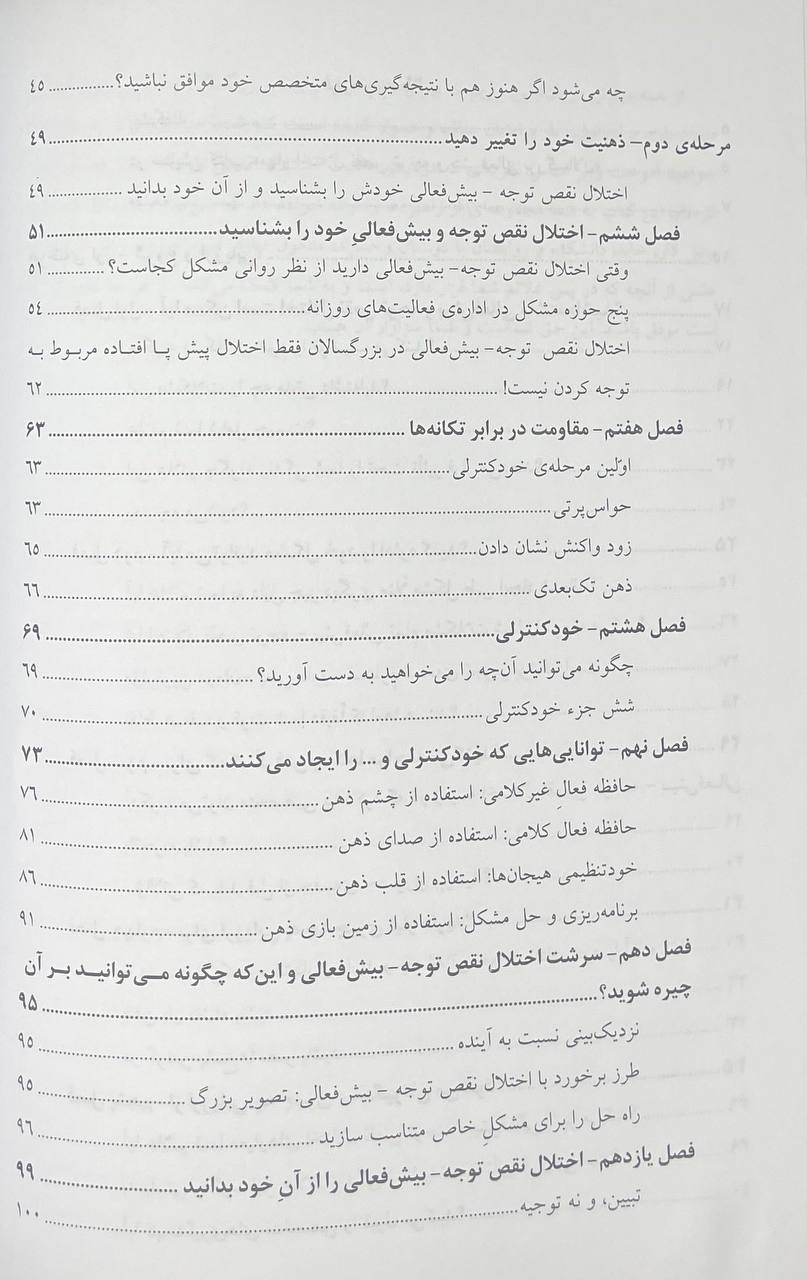 چه می‌شود اگر هنوز هم با نتیجه‌گیری‌های متخصص خود موافق نباشید؟................ ٤٥
مرحله‌ی دوم- ذهنیت خود را تغییر دهید................................................ ۴۹
اختلال نقص توجه - بیش‌فعالی خودش را بشناسید و از آن خود بدانید .................. ٤٩
فصل ششم- اختلال نقص توجه و بیش‌فعالیِ خود را بشناسید................................ ۵۱
وقتی اختلال نقص توجه- بیش‌فعالی دارید از نظر روانی مشکل کجاست؟............ ٥١
پنج حوزه مشکل در اداره‌ی فعالیت‌های روزانه........................................ ٥٤
اختلال نقص توجه- بیش‌فعالی در بزرگسالان فقط اختلال پیش پا افتاده مربوط به
توجه کردن نیست! ................................................................ ٦٢
فصل هفتم- مقاومت در برابر تکانه‌ها .................................................. ۶۳
اوّلین مرحله‌ی خودکنترلی............................................................ ٦٣
حواس‌پرتی.......................................................................... ٦٣
زود واکنش نشان دادن................................................................ ٦٥
ذهن تک‌بعدی ...................................................................... ٦٦
فصل هشتم- خودکنترلی................................................................ ۶۹
چگونه می‌توانید آن‌چه را می‌خواهید به دست آورید؟ .................................. ٦٩
شش جزء خودکنترلی .................................................................. ٧٠
فصل نهم- توانایی‌هایی که خودکنترلی و ... را ایجاد می‌کنند............................ ۷۳
حافظه فعالِ غیرکلامی: استفاده از چشم ذهن .......................................... ٧٦
حافظه فعال کلامی: استفاده از صدای ذهن ............................................ ٨١
خودتنظیمی هیجان‌ها: استفاده از قلب ذهن ............................................ ٨٦
برنامه‌ریزی و حل مشکل: استفاده از زمین بازی ذهن .................................. ٩١
فصل دهم- سرشت اختلال نقص توجه- بیش‌فعالی و این‌که چگونه می‌توانید بر آن
چیره شوید؟.......................................................................... ۹۵
نزدیک‌بینی نسبت به آینده ............................................................ ٩٥
طرز برخورد با اختلال نقص توجه - بیش‌فعالی: تصویر بزرگ .......................... ٩٥
راه حل را برای مشکلِ خاص متناسب سازید ............................................ ٩٦
فصل یازدهم- اختلال نقص توجه- بیش‌فعالی را از آنِ خود بدانید ........................ ۹۹
تبیین، و نه توجیه.................................................................... ١٠٠